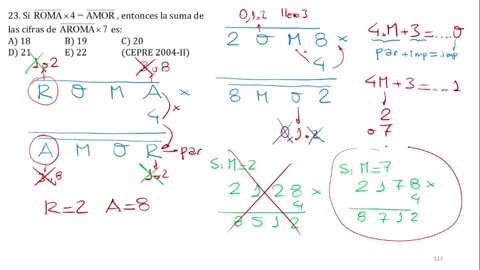 23. Si ROMA×4 = AMOR, entonces la suma de
las cifras de AROMA×7 es:
A) 18 B) 19 C) 20
D) 21 E) 22 (CEPRE 2004-II)
1.2 3.8
R O M A ×
4
A M O R → par
3.8 1.2
R=2 A=8
0,1.2 llevo 3
2 O M 8 ×
4
8 M O 2
0.1.2
4.M+3=....O
par+imp=imp
4M+3=...1
2
o 7
Si M=2
2 1 2 8 ×
4
8 5 1 2
Si M=7
2 1 7 8 ×
4
8 7 1 2
117